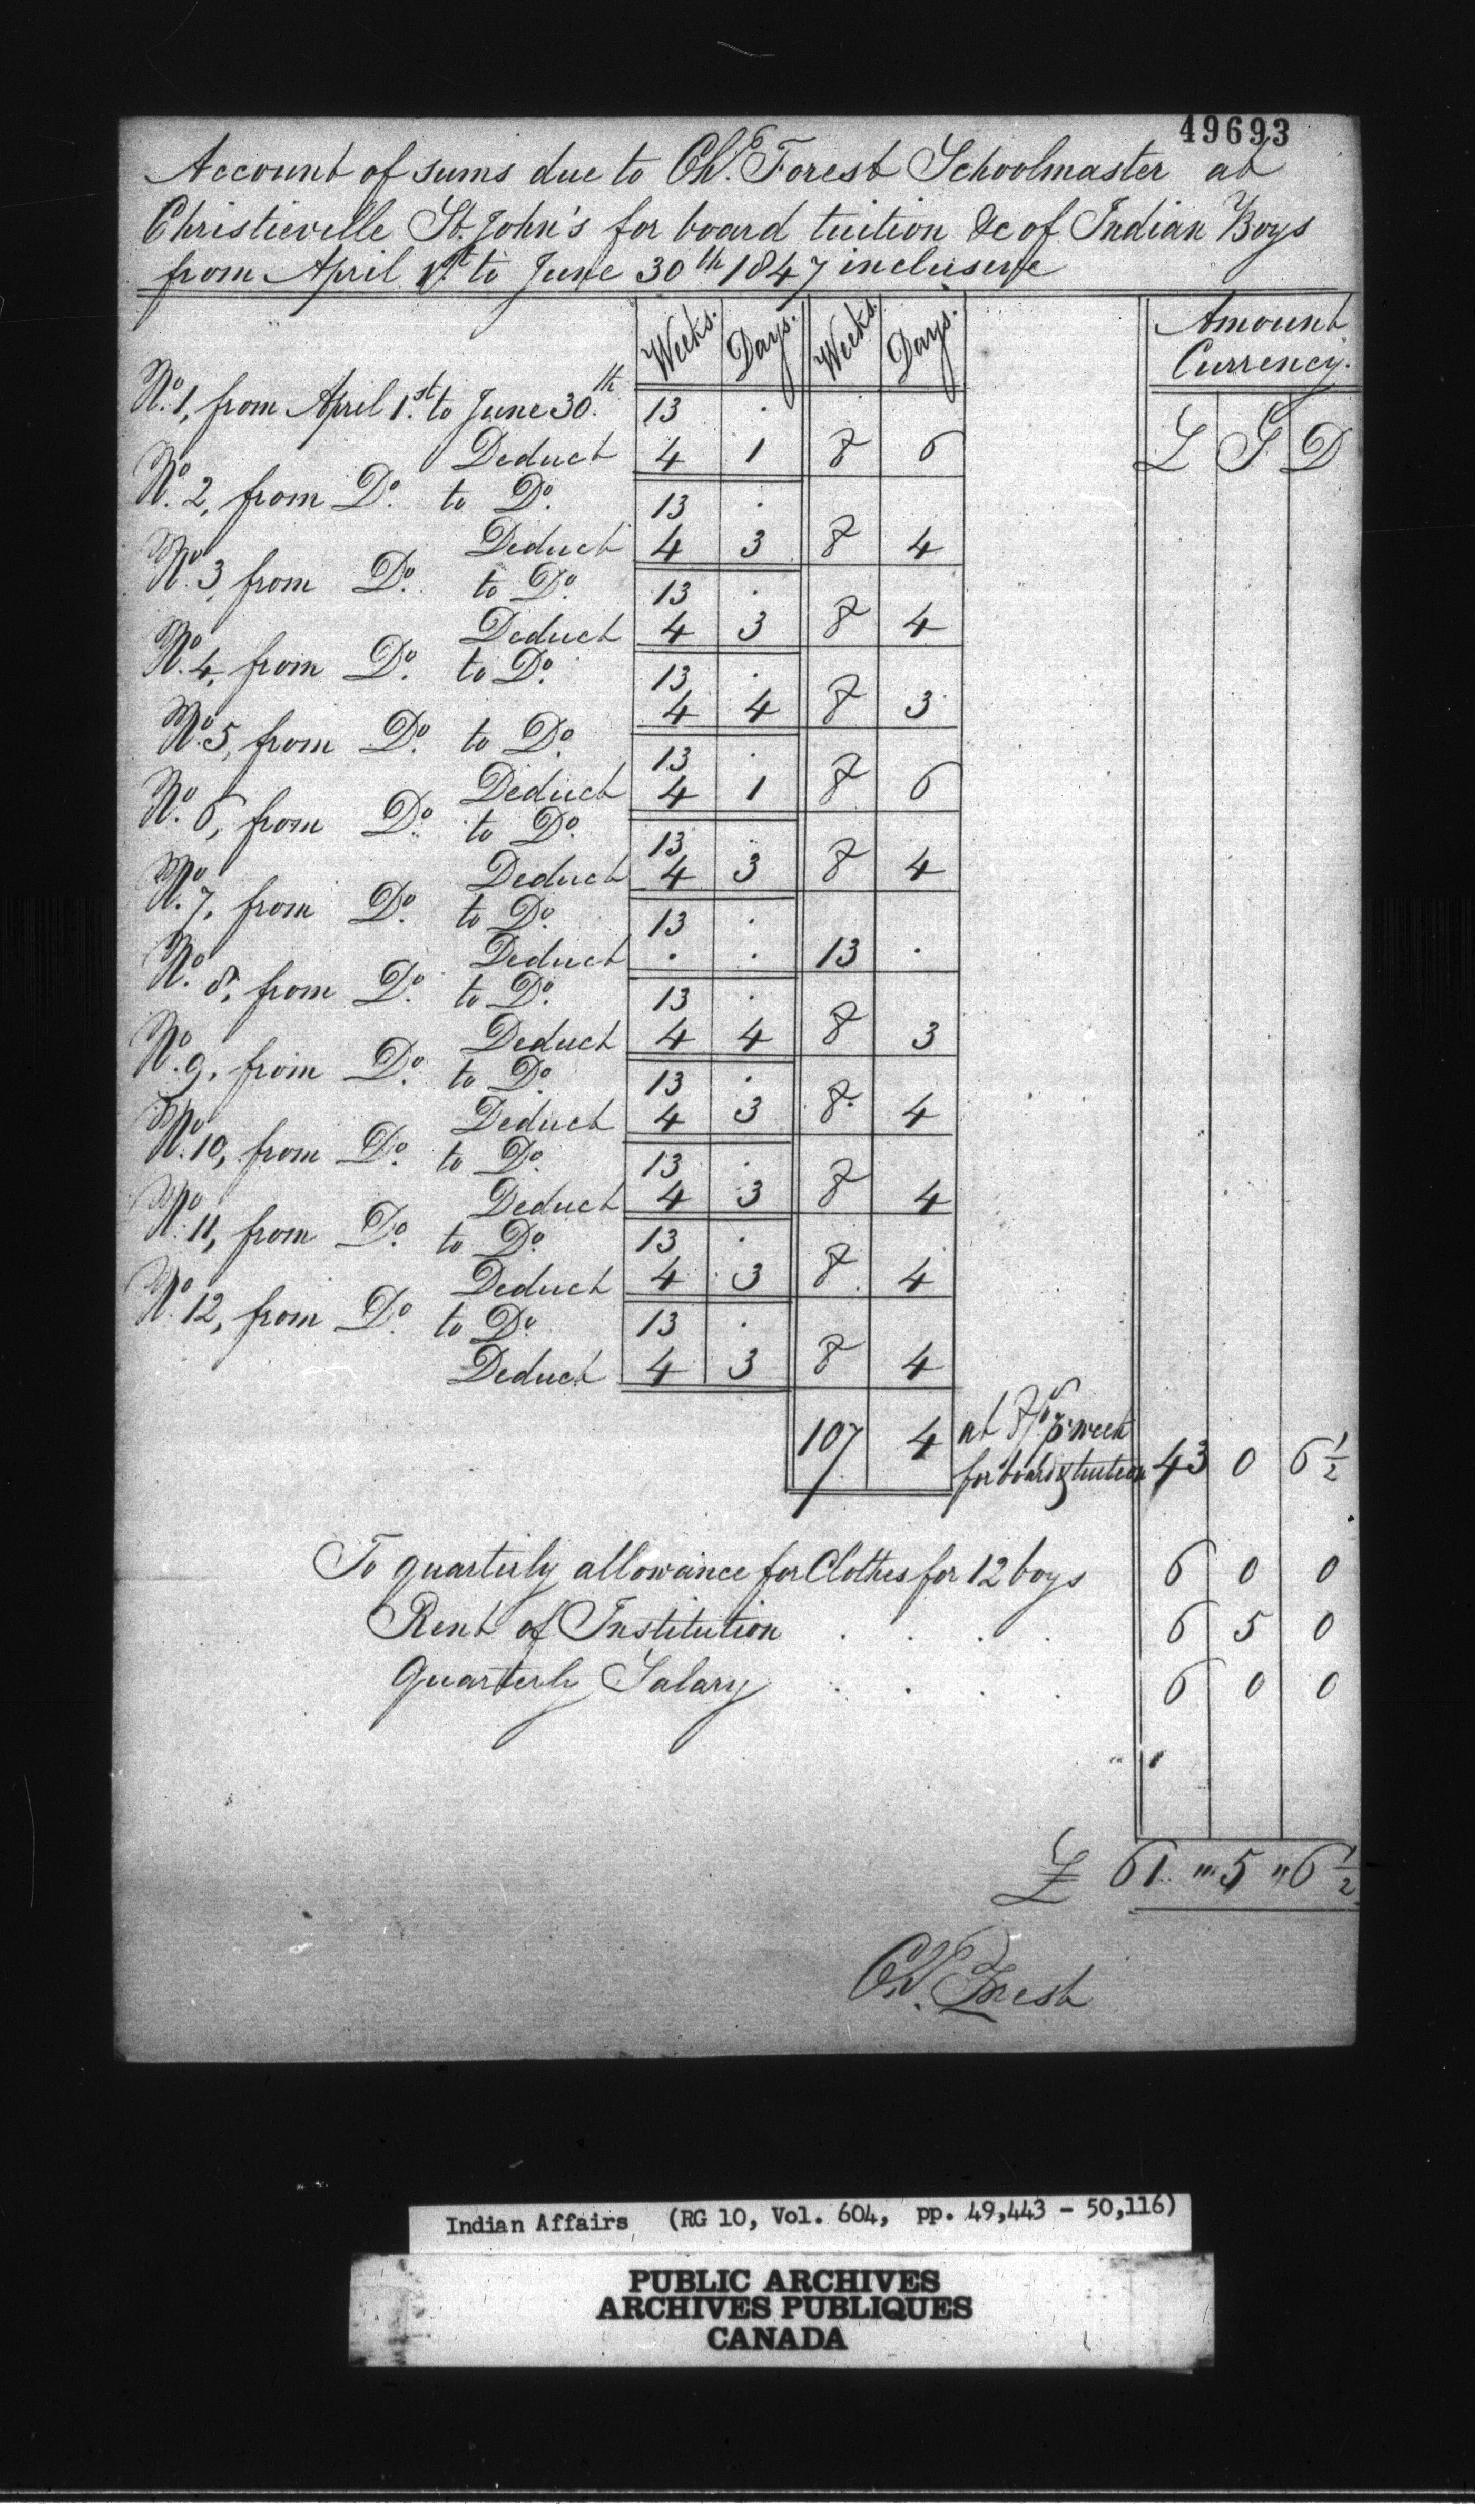 49693
Account of sums due to Chs. Forest Schoolmaster at
Christieville St. John's for board tuition &c of Indian Boys
from April 1st. to June 30th 1847 inclusive
Weeks. Days. Weeks. Days. Amount Currency.
£ S D
No. 1, from April 1st. to June 30th. 13 .
Deduct 4 1 8 6
No. 2, from Do. to Do. 13 .
Deduct 4 3 8 4
No. 3, from Do. to Do. 13 .
Deduct 4 3 8 4
No. 4, from Do. to Do. 13 .
4 4 8 3
No. 5, from Do. to Do. 13 .
Deduct 4 1 8 6
No. 6, from Do. to Do. 13 .
Deduct 4 3 8 4
No. 7, from Do. to Do. 13 .
Deduct . . 13 .
No. 8, from Do. to Do. 13 .
Deduct 4 4 8 3
No. 9, from Do. to Do. 13 .
Deduct 4 3 8 4
No. 10, from Do. to Do. 13 .
Deduct 4 3 8 4
No. 11, from Do. to Do. 13 .
Deduct 4 3 8 4
No. 12, from Do. to Do. 13 .
Deduct 4 3 8 4
107 4 at 8/ week
for board & tuition 43 0 6 1/2
To quarterly allowance for Clothes for 12 boys 6 0 0
Rent of Institution . . . . 6 5 0
Quarterly Salary . . . . 6 0 0
£ 61 " 5 " 6 1/2
Chs. Forest
Indian Affairs (RG 10, Vol. 604, pp. 49,443 - 50,116)
PUBLIC ARCHIVES
ARCHIVES PUBLIQUES
CANADA